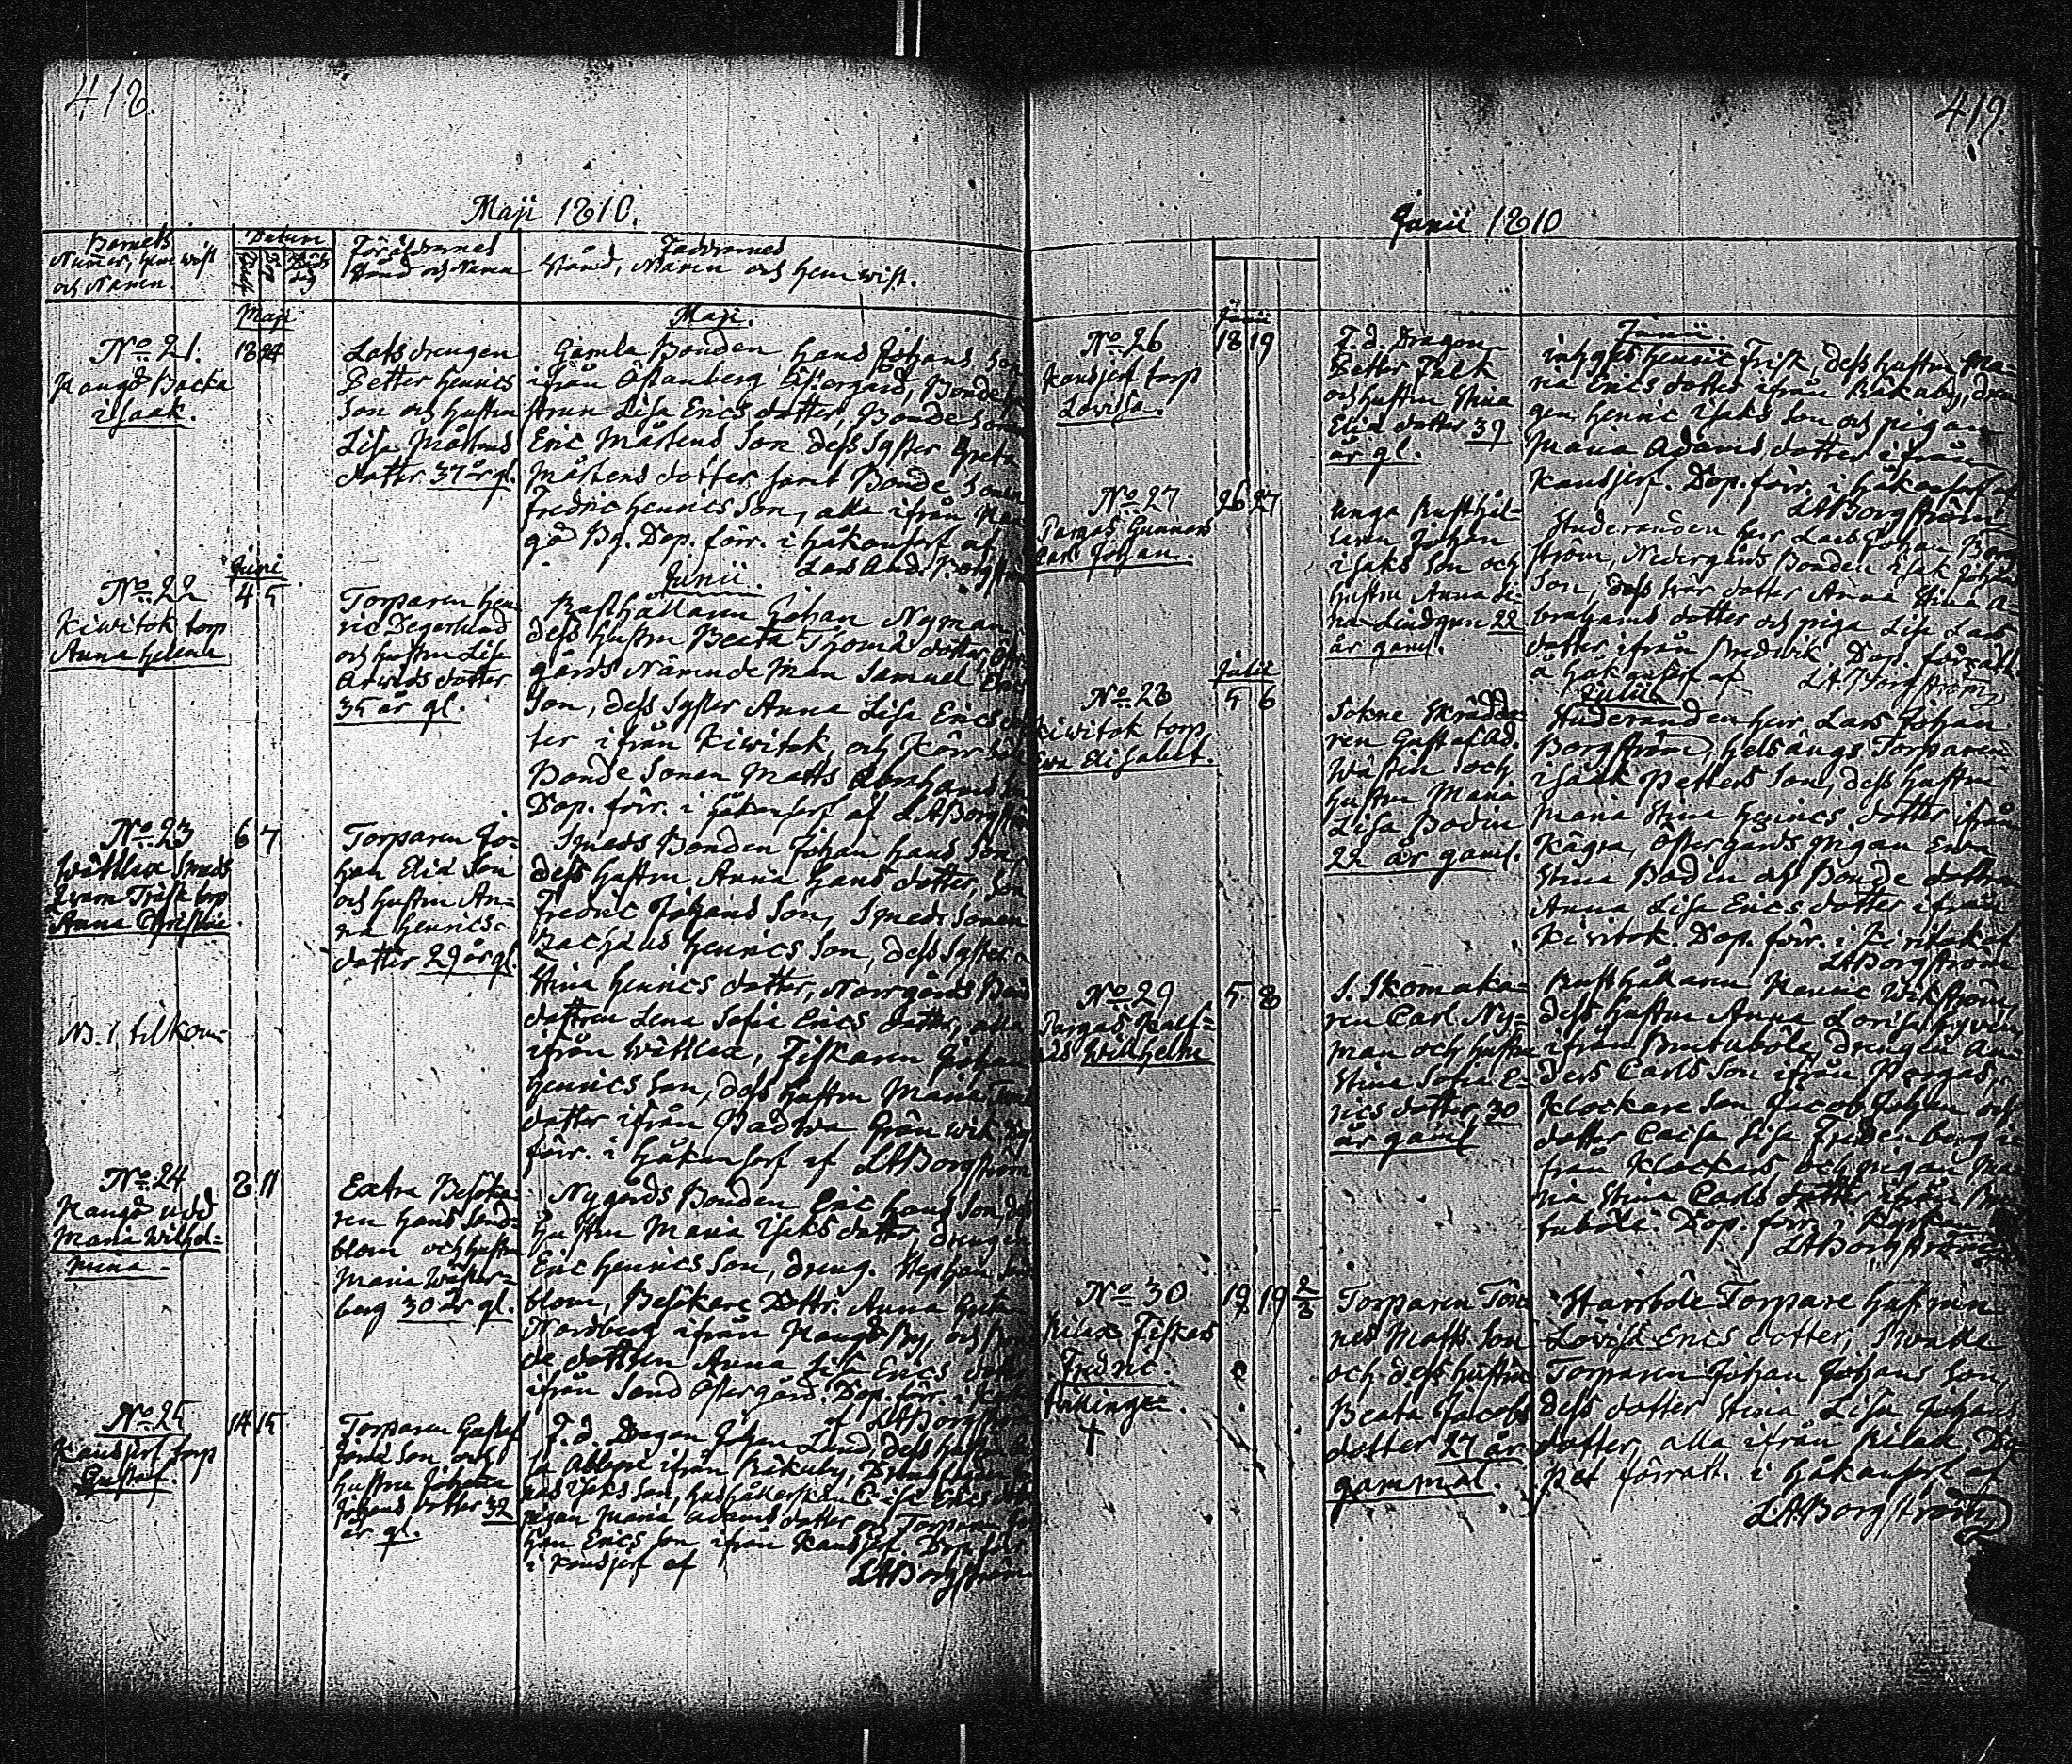 418.
Maji 1810.
Barnets
Numer, hemwist
och Namn.
Datum
Föräldrarnes
Stånd och Namn
Faddrarnes
Stånd, Namn och hemwist.
Maji
Maji.
No 21.
Hangö Backa
isaak.
18 24
Lotsdrengen
Petter Henrics
Son och hustru
Lisa Mårtens
dotter 37 år gl.
Gamla Bonden Hans Johans Son
ifrån Östanberg Östergård, Bondehu
strun Lisa Erics dotter, Bondesonen
Eric Mårtens Son dess Syster Greta
Mårtens dotter samt Bonde Sonen
Fredric Henrics Son, alla ifrån Han
gö By. Dop. förr. i Håkansarf af
Lars And. Borgström
Juni
Junii.
No 22
Kiwitok torp
Anna Helena
4 5
Torparen Hen
ric Degerlund
och hustru Lisa
Arwids dotter
35 år gl.
Rusthållaren Johan Nyman,
dess hustru Beata Thoma dotter,
gårds Nämndeman Samuel Erics
Son, dess Syster Anna Lisa Erics dot
ter ifrån Kiwitok, och
Bonde Sonen Matts Abrahams
Dop. förr. i Håkansarf af LABorgström
No 23
Wättlax Smeds
Qvarn Träsk torp
Anna Christina
6 7
Torparen Jo-
han Elia Son
och hustru An-
na Henrics-
dotter 29 år gl.
Smeds Bonden Johan Hans Son
dess hustru Anna Hans dotter, Son
Fredric Johans Son, Smeds Sonen
Zachäus Henrics Son, dess Syster
Stina Henrics dotter, Norrgårds Bond
dottren Lena Sofia Erics dotter, alla
ifrån Wättlax, Fiskaren Johan
Henrics Son, dess hustru Maria
dotter ifrån Padwa Grånwik Dop
förr. i Håkansarf af LABorgström
NB. 1 tilkom
No 24
Hangö udd
Maria Wilhel-
mina.
8 11
Extra Besöka-
ren Hans Sand-
blom och hustru
Maria Wäster-
berg 30 år gl.
Nygårds Bonden Eric Hans Son, dess
hustru Maria Isaks dotter, drengen
Eric Henrics Son, dreng. Stephan
blom, Besökare Dottr. Anna Greta
Nordberg ifrån Hangö By, och Bon
de dottren Anna Lisa Erics dot
ifrån Sand Östergård. Dop. förr. i
af LABorgström
No 25
Kansjerf torp
Gustaf.
14 15
Torparen Gustaf
Jona Son och
hustru Johanna
Johans dotter 32
år gl.
F. d. Dragon Johan Lund, dess hustru
ifrån Råkuby,
Isaks Son, Caisa Erics
pigan Maria Adams dotter och Torparen Jo
han Erics Son ifrån Kansjerf Dop. förr.
i Kansjerf af
LABorgström
419.
Junii 1810
Junii
Junii
No 26
Kansjerf torp
Lovisa.
18 19
F. d. Dragon
Petter Falk
och hustru Stina
Elia dotter 39
år gl.
inhyses Henric Frisk, dess hustru Ma-
ria Erics dotter ifrån Råkuby, dren-
gen Henric Isaks Son och pigan
Maria Adams dotter ifrån
Kansjerf. Dop. förr. i Håkansarf af
LABorgström
No 27
Pargas Gunnars
Carl Johan.
26 27
unga Rusthål-
laren Johan
isaks Son och
hustru Anna Le-
na Lindgren 22
år gaml.
Studeranden Herr Lars Johan Borg
ström, Nedergårds Bonden isak Johans
Son, dess Svär dotter Anna Stina A-
brahams dotter och piga Lisa Lars
dotter ifrån Bredwik Dop. förrätt.
å Håkansarf af LABorgström
Julii
Julii
No 28
Kiwitok torp
Ewa Elisabet.
5 6
Sokne Skrädda-
ren Gustaf Ad.
Wästin och
hustru Maria
Lisa Bodin
22 år gaml.
Studeranden Herr Lars Johan
Borgström, Helsängs Torparen
isaak Petters Son, dess hustru
Maria Stina Henrics dotter ifrån
Kägra, Östergårds Pigan Ewa
Stina Bodin och Bonde dottren
Anna Lisa Erics dotter ifrån
Kiwitok. Dop. förr. i Kiwitok af
LABorgström
No 29
Pargas Kalf-
näs Wilhelm
5 8
S. Skomaka-
ren Carl Ny-
man och hustru
Stina Sofia E-
rics dotter 30
år gaml
Rusthålaren Henric Wikström,
dess hustru Anna Lovisa
ifrån Brutuböle, drengen An-
ders Carls Son ifrån Pargas,
Klockare Son Jacob Johan och
dotter Caisa Lisa Fredenberg i
från Klockars och pigan Ma-
ria Stina Carls dotter ifrån Bru
tuböle. Dop. förr. i Kyrkan af
LABorgström
No 30
Rilax Fiskars
Fredric.
tvillinge.
†
19 19 2/3
Torparen Tön-
nes Matts Son
och dess hustru
Beata Jacobs
dotter 27 år
gammal.
Starrböle Torpare hustrun
Lovisa Erics dotter,
Torparen Johan Johans Son,
dess dotter Stina Lisa Johans
dotter, alla ifrån Rilax. Do-
pet förrätt. i Håkansarf af
LABorgström